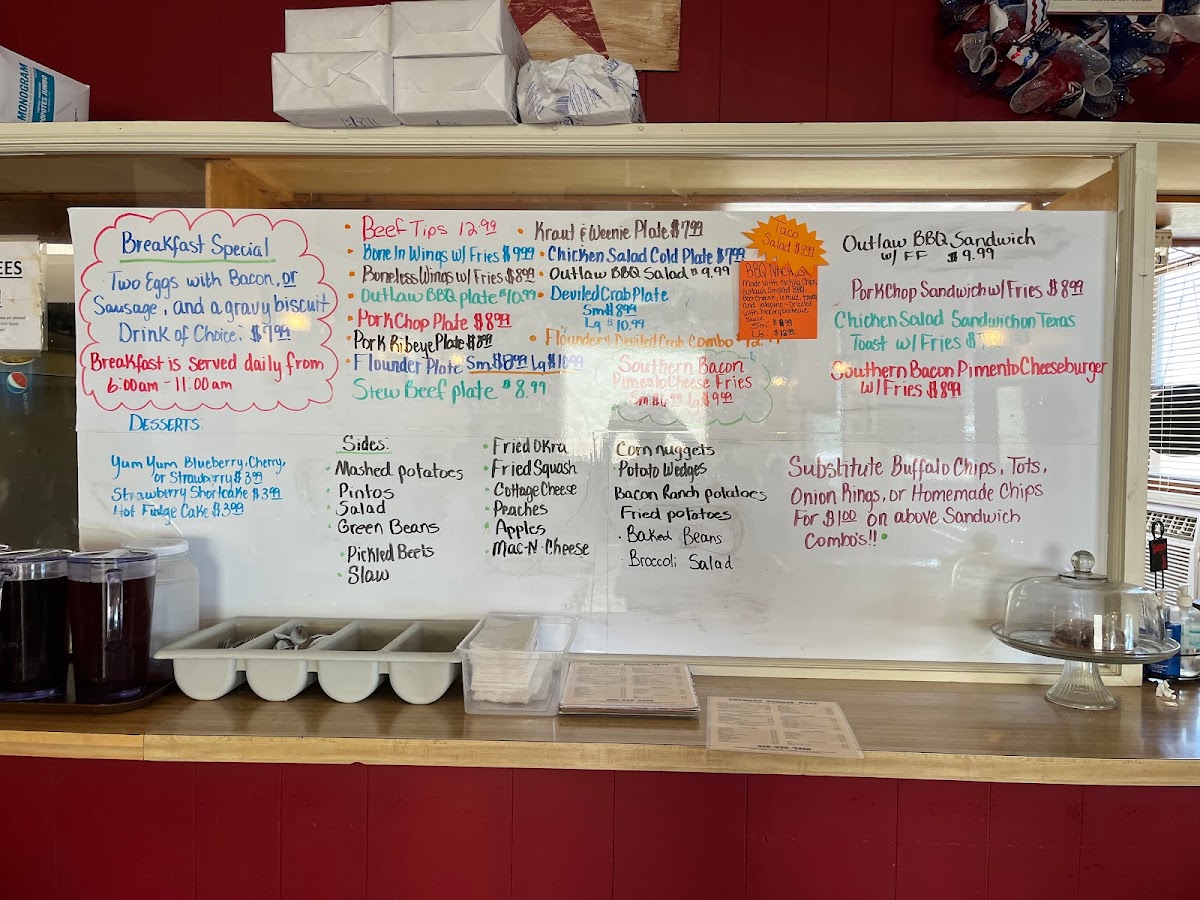 MONOGRAM
EES
Breakfast Special
Two Eggs with Bacon, or
Sausage, and a gravy biscuit
Drink of Choice: $9.99
Breakfast is served daily from
6:00am - 11:00am
DESSERTS
Yum Yum Blueberry, Cherry,
or Strawberry $3.99
Strawberry Shortcake $3.99
Hot Fudge Cake $3.99
Beef Tips 12.99
Bone In Wings w/ Fries $9.99
Boneless Wings w/ Fries $8.99
Outlaw BBQ plate $10.99
Pork Chop Plate $8.99
Pork Ribeye Plate $8.99
Flounder Plate Sm $8.99 Lg $10.99
Stew Beef plate $8.99
Kraut & Weenie Plate $7.99
Chicken Salad Cold Plate $7.99
Outlaw BBQ Salad $9.99
Deviled Crab Plate
Sm $8.99
Lg $10.99
Flounder & Deviled Crab Combo
Southern Bacon
Pimento Cheese Fries
Sm. Lg. $9.99
Taco
Salad $8.99
BBQ Nachos
Made with tortilla chips,
Outlaw's Smoked BBQ,
Sm $8.99
LG $12.99
Outlaw BBQ Sandwich
w/ FF $9.99
Pork Chop Sandwich w/ Fries $8.99
Chicken Salad Sandwich on Texas
Toast w/ Fries $
Southern Bacon Pimento Cheeseburger
w/ Fries $8.99
Sides:
Mashed potatoes
Pintos
Salad
Green Beans
Pickled Beets
Slaw
Fried Okra
Fried Squash
Cottage Cheese
Peaches
Apples
Mac-N-Cheese
Corn nuggets
Potato Wedges
Bacon Ranch potatoes
Fried potatoes
Baked Beans
Broccoli Salad
Substitute Buffalo Chips, Tots,
Onion Rings, or Homemade Chips
For $1.00 on above Sandwich
Combo's!!